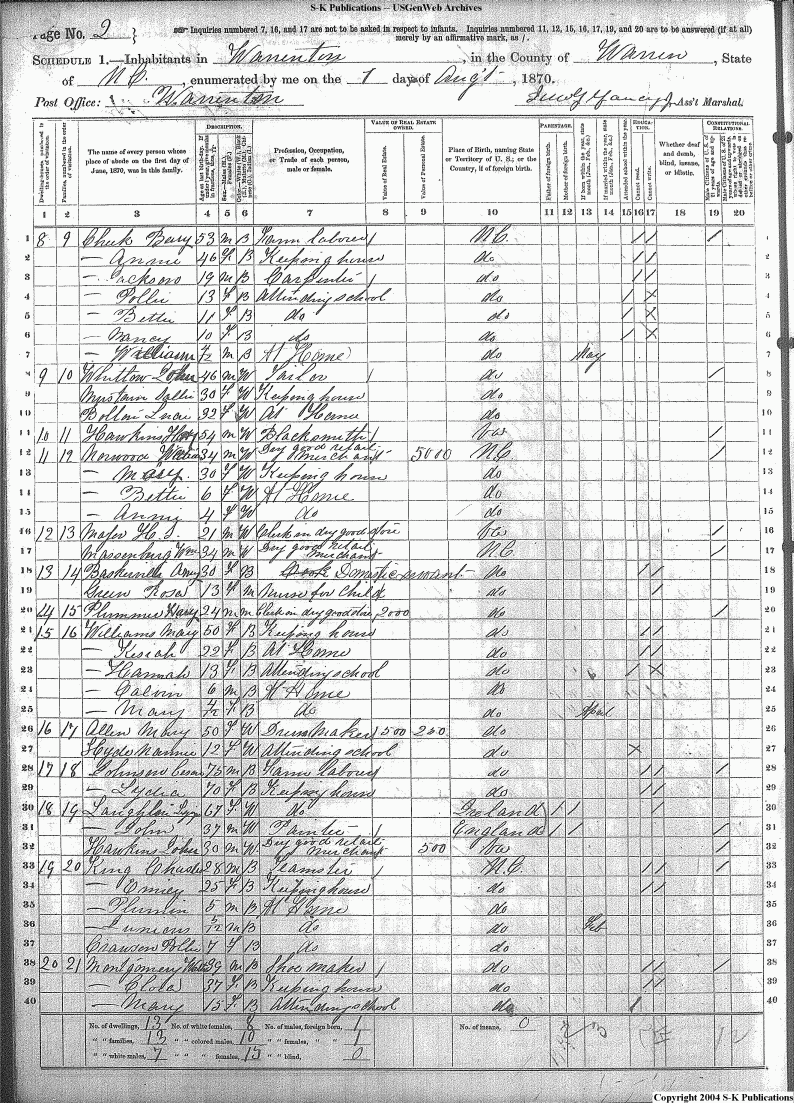 S-K Publications -- USGenWeb Archives
Page No. 2 } Inquiries numbered 7, 16, and 17 are not to be asked in respect to infants. Inquiries numbered 11, 12, 15, 16, 17, 19, and 20 are to be answered (if at all)
merely by an affirmative mark, as /.
SCHEDULE 1.—Inhabitants in Warrenton, in the County of Warren, State
of N.C., enumerated by me on the 1 day of Augt, 1870.
Post Office: Warrenton Yancey, Ass't Marshal.
DESCRIPTION. VALUE OF REAL ESTATE OWNED. PARENTAGE. EDUCATION. CONSTITUTIONAL RELATIONS.
The name of every person whose place of abode on the first day of June, 1870, was in this family.
Profession, Occupation, or Trade of each person, male or female.
Value of Real Estate. Value of Personal Estate.
Place of Birth, naming State or Territory of U. S.; or the Country, if of foreign birth.
Father of foreign birth. Mother of foreign birth.
Attended school within the year. Cannot read. Cannot write.
Whether deaf and dumb, blind, insane, or idiotic.
1 2 3 4 5 6 7 8 9 10 11 12 13 14 15 16 17 18 19 20
1 8 9 Cheek Berry 53 M B Farm laborer / N.C. / / / 1
2 — Annie 46 F B Keeping house do / / 2
3 — Jackson 19 M B Carpenter do / / 3
4 — Pollie 13 F B Attending school do / X 4
5 — Bettie 11 F B do do / X 5
6 — Nancy 10 F B do do / X 6
7 — William M B At Home do May 7
8 9 10 John 46 M W Tailor / do / 8
9 Sallie 30 F W Keeping house do 9
10 32 F W At Home do 10
11 10 11 Hawkins 54 M W Blacksmith / Va / 11
12 11 12 Norwood William 34 M W Dry good retail merchant 5000 N.C. / 12
13 — Mary 30 F W Keeping house do 13
14 — Bettie 6 F W At Home do 14
15 — Annie 4 F W do do 15
16 12 13 Major H. S. 21 M W Clerk in dry good store Va / 16
17 Massenburg Wm 34 M W Dry good retail merchant N.C. / 17
18 13 14 Baskerville Amy 30 F B Domestic servant do / / 18
19 Green Rosa 13 F M Nurse for Child do / 19
20 14 15 Plummer Harry 24 M M Clerk in dry good store 2000 do / 20
21 15 16 Williams Mary 50 F B Keeping house do / / 21
22 — Kisiah 22 F B At Home do / / 22
23 — Hannah 13 F B Attending school do / X 23
24 — Calvin 6 M B At Home do 24
25 — Mary F B do do April 25
26 16 17 Allen Mary 50 F W Dress Maker 1500 250 do 26
27 Hyde Nannie 12 F W Attending school do X 27
28 17 18 Johnson Cesar 75 M B Farm laborer do / / / 28
29 — Lydia 70 F B Keeping house do / / 29
30 18 19 Laughlin 67 F W do Ireland / / / 30
31 — John 37 M W Painter / England / / / 31
32 Hawkins John 30 M W Dry good retail merchant 500 Va / 32
33 19 20 King Charles 28 M B Teamster / N.C. / / / 33
34 — 25 F B Keeping house do / / 34
35 — 5 M B At Home do 35
36 — Junious M B do do Feb 36
37 Crawson Pollie 7 F B do do 37
38 20 21 Montgomery 39 M B Shoe maker / do / / / 38
39 — Clora 37 F B Keeping house do / / 39
40 — Mary 15 F B Attending school do / 40
No. of dwellings, 13 No. of white females, 8 No. of males, foreign born, 1 No. of insane, 0
" " families, 13 " " colored males, 10 " " females, " " 1
" " white males, 7 " " " females, 15 " " blind, 0
Copyright 2004 S-K Publications